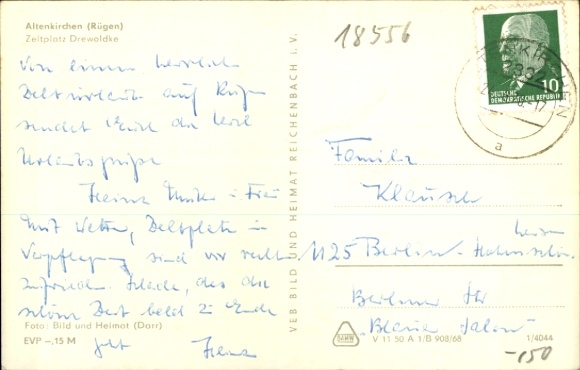 Altenkirchen (Rügen)
Zeltplatz Drewoldke
18556
Von einem herrlichen
Zelturlaub auf Rügen
sendet Euch die
Urlaubsgrüße
Heinz u. Frau
Mit Wetter, Zeltplatz u.
Verpflegung sind wir sehr
zufrieden. Schade, das die
schöne Zeit bald zu Ende
geht Heinz
Foto: Bild und Heimat (Darr)
EVP -,15 M
VEB BILD UND HEIMAT REICHENBACH i. V.
10
DEUTSCHE
DEMOKRATISCHE REPUBLIK
a
Familie
Klausch
1125 Berlin-
Berliner Str
"Blauer Salon"
V 11 50 A 1/B 908/68 1/4044
-150